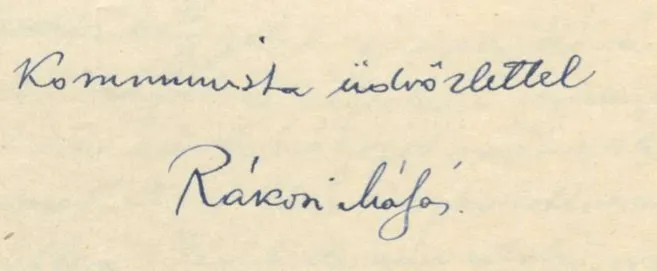 Kommunista üdvözlettel
Rákosi Mátyás.